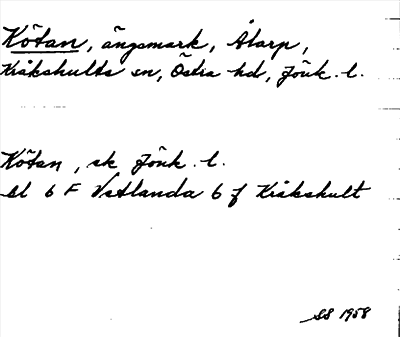 Kötan, ängsmark, Åtarp,
Kråkshults sn, Östra hd, Jönk. l.
Kötan, sk Jönk. l.
bl 6 F Vetlanda 6 f Kråkshult
SS 1958